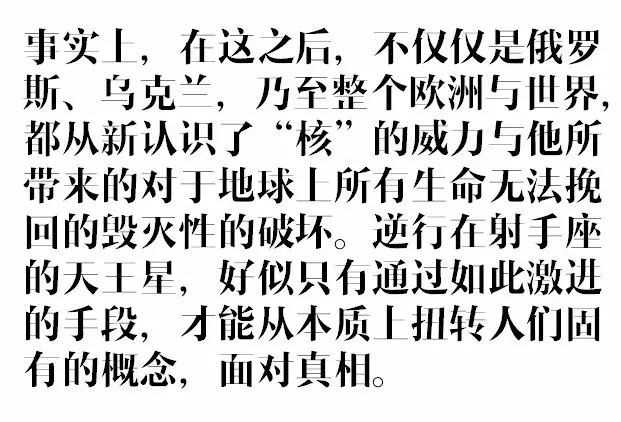 事实上，在这之后，不仅仅是俄罗
斯、乌克兰，乃至整个欧洲与世界，
都从新认识了“核”的威力与他所
带来的对于地球上所有生命无法挽
回的毁灭性的破坏。逆行在射手座
的天王星，好似只有通过如此激进
的手段，才能从本质上扭转人们固
有的概念，面对真相。